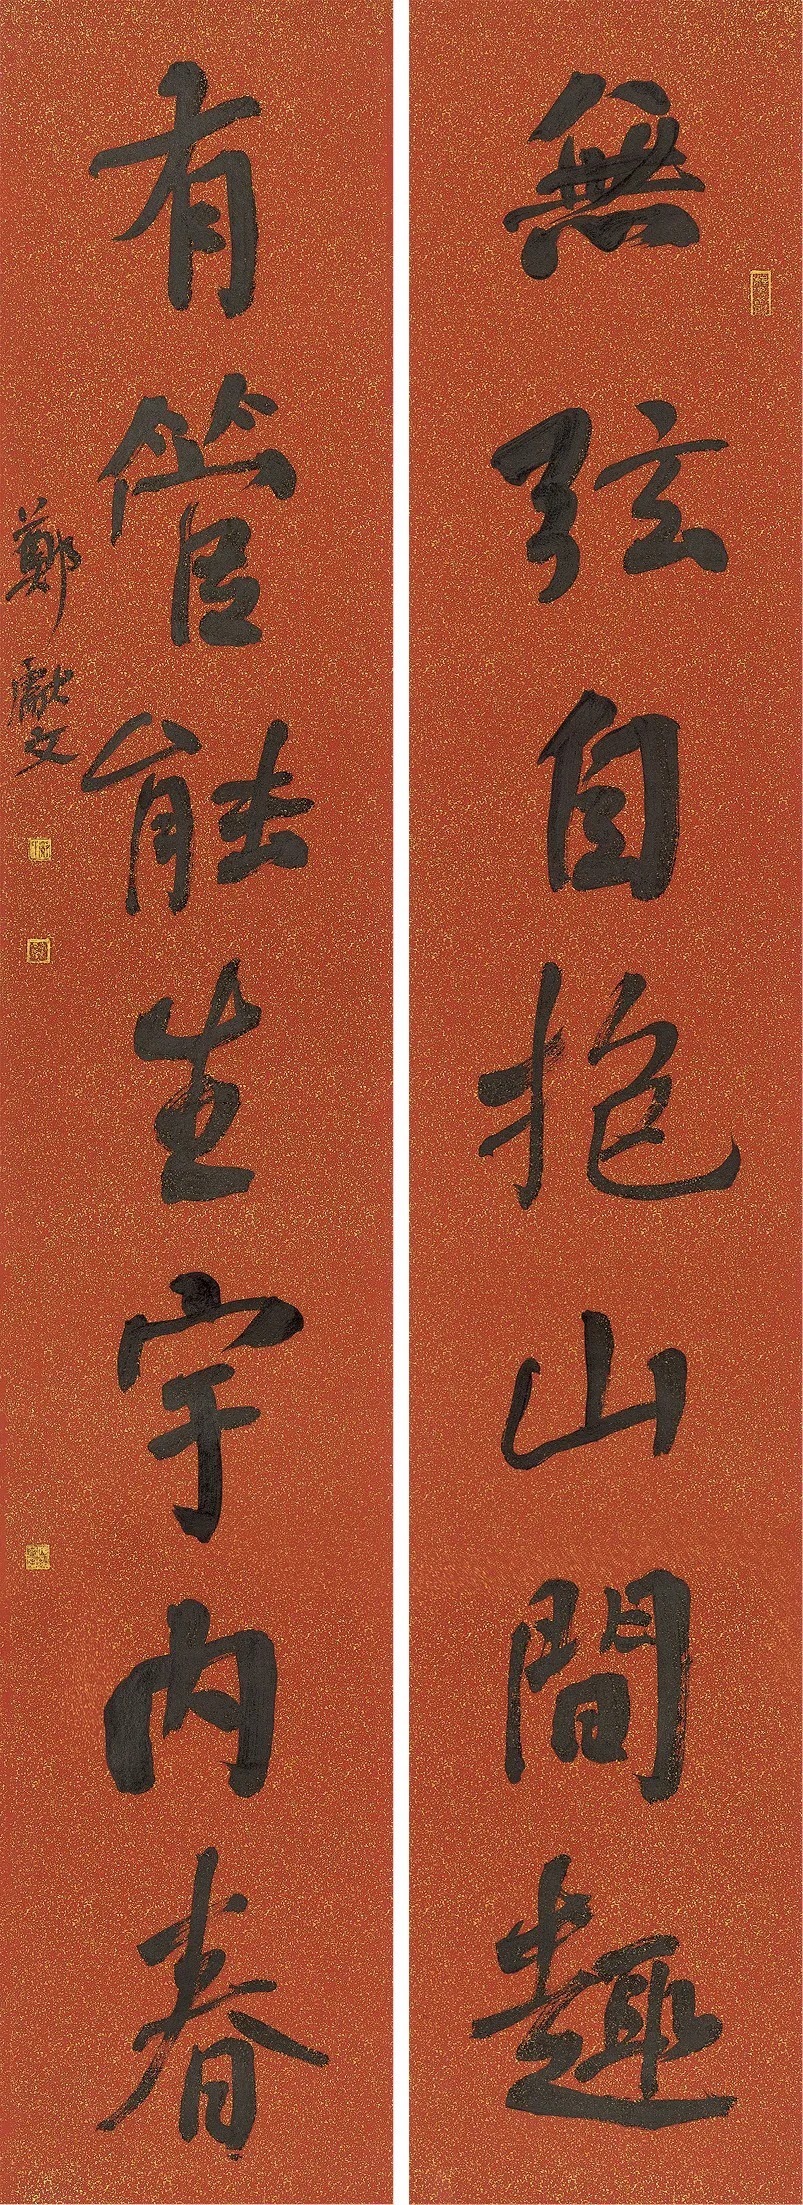 無弦自抱山間趣
有管能生宇內春
鄭獻文